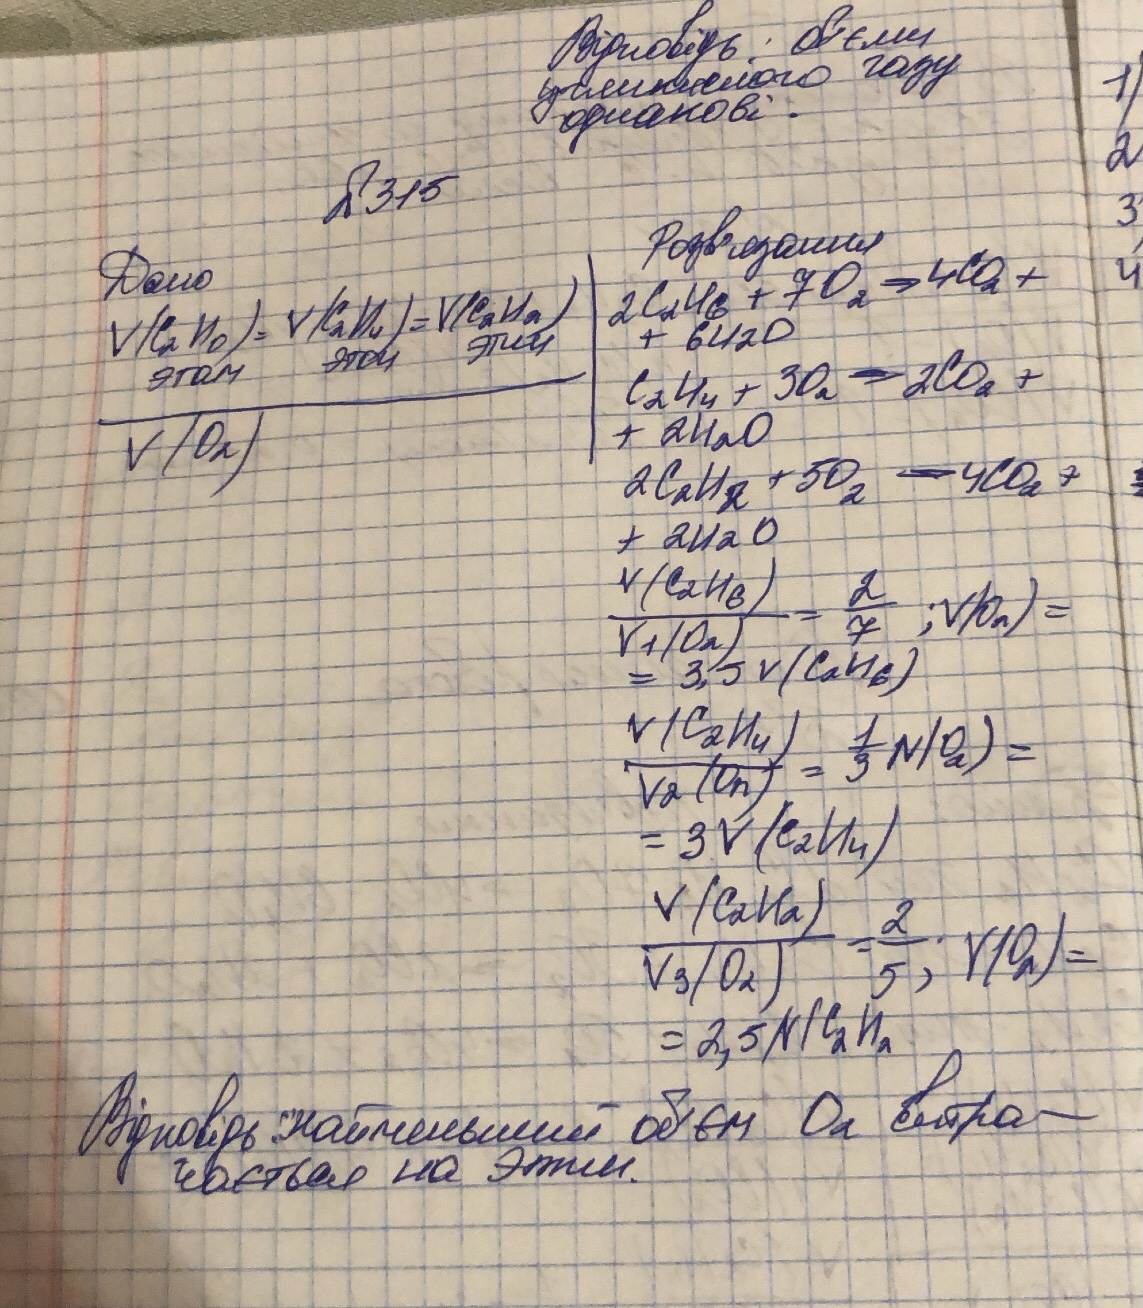 Відповідь: об'єми
углекислого газу
однакові.
№315
Дано
V(C2H6) = V(C2H4) = V(C2H2)
этан этен этин
V(O2)
Розв'язання
2C2H6 + 7O2 → 4CO2 +
+ 6H2O
C2H4 + 3O2 → 2CO2 +
+ 2H2O
2C2H2 + 5O2 → 4CO2 +
+ 2H2O
V(C2H6) / V1(O2) = 2/7 ; V(O2) =
= 3,5 V(C2H6)
V(C2H4) / V2(O2) = 1/3 V(O2) =
= 3 V(C2H4)
V(C2H2) / V3(O2) = 2/5 ; V(O2) =
= 2,5 V(C2H2
Відповідь: найменьший об'єм O2 витра-
чається на этин.
1)
2
3
4